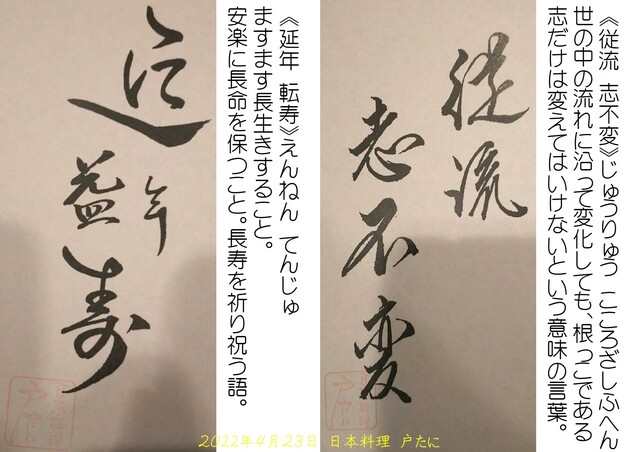 《従流 志不変》じゅうりゅう こころざしふへん
世の中の流れに沿って変化しても、根っこである
志だけは変えてはいけないという意味の言葉。
従流
志不変
《延年 転寿》えんねん てんじゅ
ますます長生きすること。
安楽に長命を保つこと。長寿を祈り祝う語。
延年
益寿
2022年4月23日 日本料理 戸たに